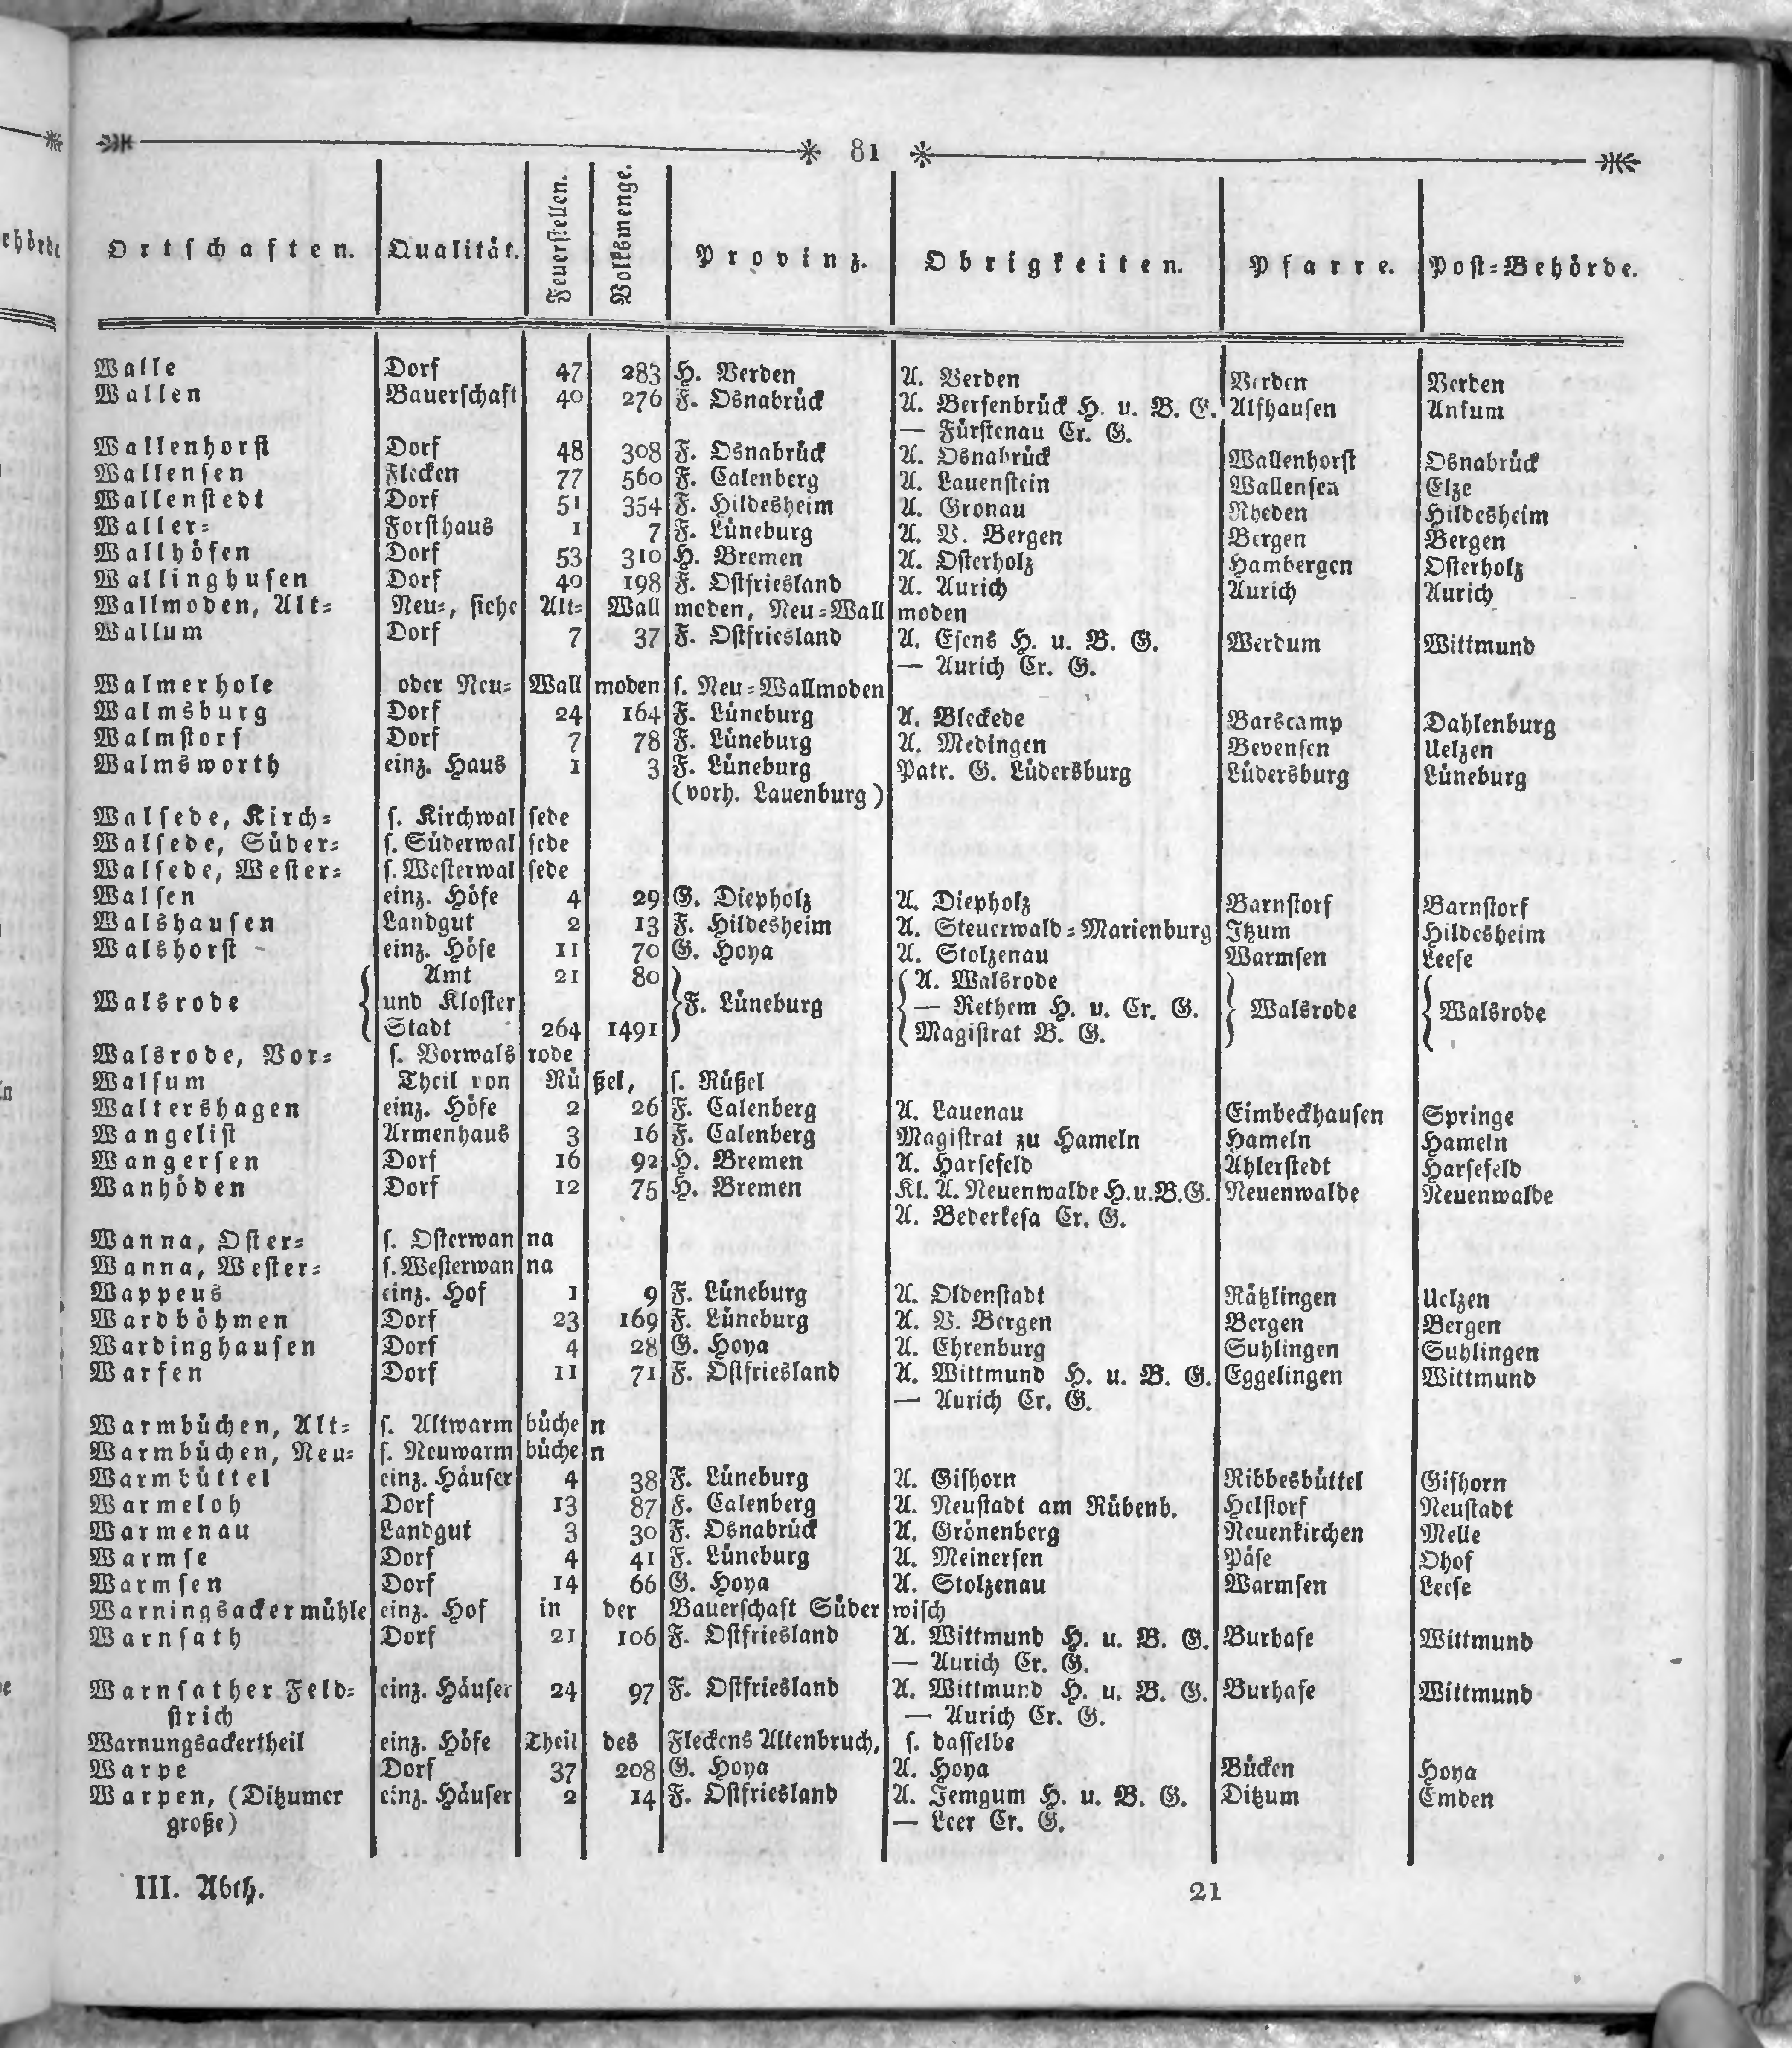 81
Ortschaften. Qualität. Feuerstellen. Volksmenge. Provinz. Obrigkeiten. Pfarre. Post-Behörde.
Walle Dorf 47 283 H. Verden A. Verden Verden Verden
Wallen Bauerschaft 40 276 F. Osnabrück A. Bersenbrück H. u. B. G. Alfhausen Ankum
— Fürstenau Cr. G.
Wallenhorst Dorf 48 308 F. Osnabrück A. Osnabrück Wallenhorst Osnabrück
Wallensen Flecken 77 560 F. Calenberg A. Lauenstein Wallensen Elze
Wallenstedt Dorf 51 354 F. Hildesheim A. Gronau Rheden Hildesheim
Waller- Forsthaus 1 7 F. Lüneburg A. V. Bergen Bergen Bergen
Wallhöfen Dorf 53 310 H. Bremen A. Osterholz Hambergen Osterholz
Wallinghusen Dorf 40 198 F. Ostfriesland A. Aurich Aurich Aurich
Wallmoden, Alt- Neu-, siehe Alt- Wallmoden, Neu-Wallmoden
Wallum Dorf 7 37 F. Ostfriesland A. Esens H. u. B. G. Werdum Wittmund
— Aurich Cr. G.
Walmerhole oder Neu-Wallmoden s. Neu-Wallmoden
Walmsburg Dorf 24 164 F. Lüneburg A. Bleckede Barscamp Dahlenburg
Walmstorf Dorf 7 78 F. Lüneburg A. Medingen Bevensen Uelzen
Walmsworth einz. Haus 1 3 F. Lüneburg Patr. G. Lüdersburg Lüdersburg Lüneburg
(vorh. Lauenburg)
Walsede, Kirch- s. Kirchwalsede
Walsede, Süder- s. Süderwalsede
Walsede, Wester- s. Westerwalsede
Walsen einz. Höfe 4 29 G. Diepholz A. Diepholz Barnstorf Barnstorf
Walshausen Landgut 2 13 F. Hildesheim A. Steuerwald-Marienburg Itzum Hildesheim
Walshorst einz. Höfe 11 70 G. Hoya A. Stolzenau Warmsen Leese
Amt 21 80 A. Walsrode
Walsrode und Kloster F. Lüneburg — Rethem H. u. Cr. G. Walsrode Walsrode
Stadt 264 1491 Magistrat B. G.
Walsrode, Vor- s. Vorwalsrode
Walsum Theil von Rüßel, s. Rüßel
Waltershagen einz. Höfe 2 26 F. Calenberg A. Lauenau Eimbeckhausen Springe
Wangelist Armenhaus 3 16 F. Calenberg Magistrat zu Hameln Hameln Hameln
Wangersen Dorf 16 92 H. Bremen A. Harsefeld Ahlerstedt Harsefeld
Wanhöden Dorf 12 75 H. Bremen Kl. A. Neuenwalde H.u.B.G. Neuenwalde Neuenwalde
A. Bederkesa Cr. G.
Wanna, Oster- s. Osterwanna
Wanna, Wester- s. Westerwanna
Wappeus einz. Hof 1 9 F. Lüneburg A. Oldenstadt Rätzlingen Uelzen
Wardböhmen Dorf 23 169 F. Lüneburg A. V. Bergen Bergen Bergen
Wardinghausen Dorf 4 28 G. Hoya A. Ehrenburg Suhlingen Suhlingen
Warfen Dorf 11 71 F. Ostfriesland A. Wittmund H. u. B. G. Eggelingen Wittmund
— Aurich Cr. G.
Warmbüchen, Alt- s. Altwarmbüchen
Warmbüchen, Neu- s. Neuwarmbüchen
Warmbüttel einz. Häuser 4 38 F. Lüneburg A. Gifhorn Ribbesbüttel Gifhorn
Warmeloh Dorf 13 87 F. Calenberg A. Neustadt am Rübenb. Helstorf Neustadt
Warmenau Landgut 3 30 F. Osnabrück A. Grönenberg Neuenkirchen Melle
Warmse Dorf 4 41 F. Lüneburg A. Meinersen Päse Ohof
Warmsen Dorf 14 66 G. Hoya A. Stolzenau Warmsen Leese
Warningsackermühle einz. Hof in der Bauerschaft Süderwisch
Warnsath Dorf 21 106 F. Ostfriesland A. Wittmund H. u. B. G. Burhafe Wittmund
— Aurich Cr. G.
Warnsather Feld- einz. Häuser 24 97 F. Ostfriesland A. Wittmund H. u. B. G. Burhafe Wittmund
strich — Aurich Cr. G.
Warnungsackertheil einz. Höfe Theil des Fleckens Altenbruch, s. dasselbe
Warpe Dorf 37 208 G. Hoya A. Hoya Bücken Hoya
Warpen, (Ditzumer einz. Häuser 2 14 F. Ostfriesland A. Jemgum H. u. B. G. Ditzum Emden
große) — Leer Cr. G.
III. Abth. 21